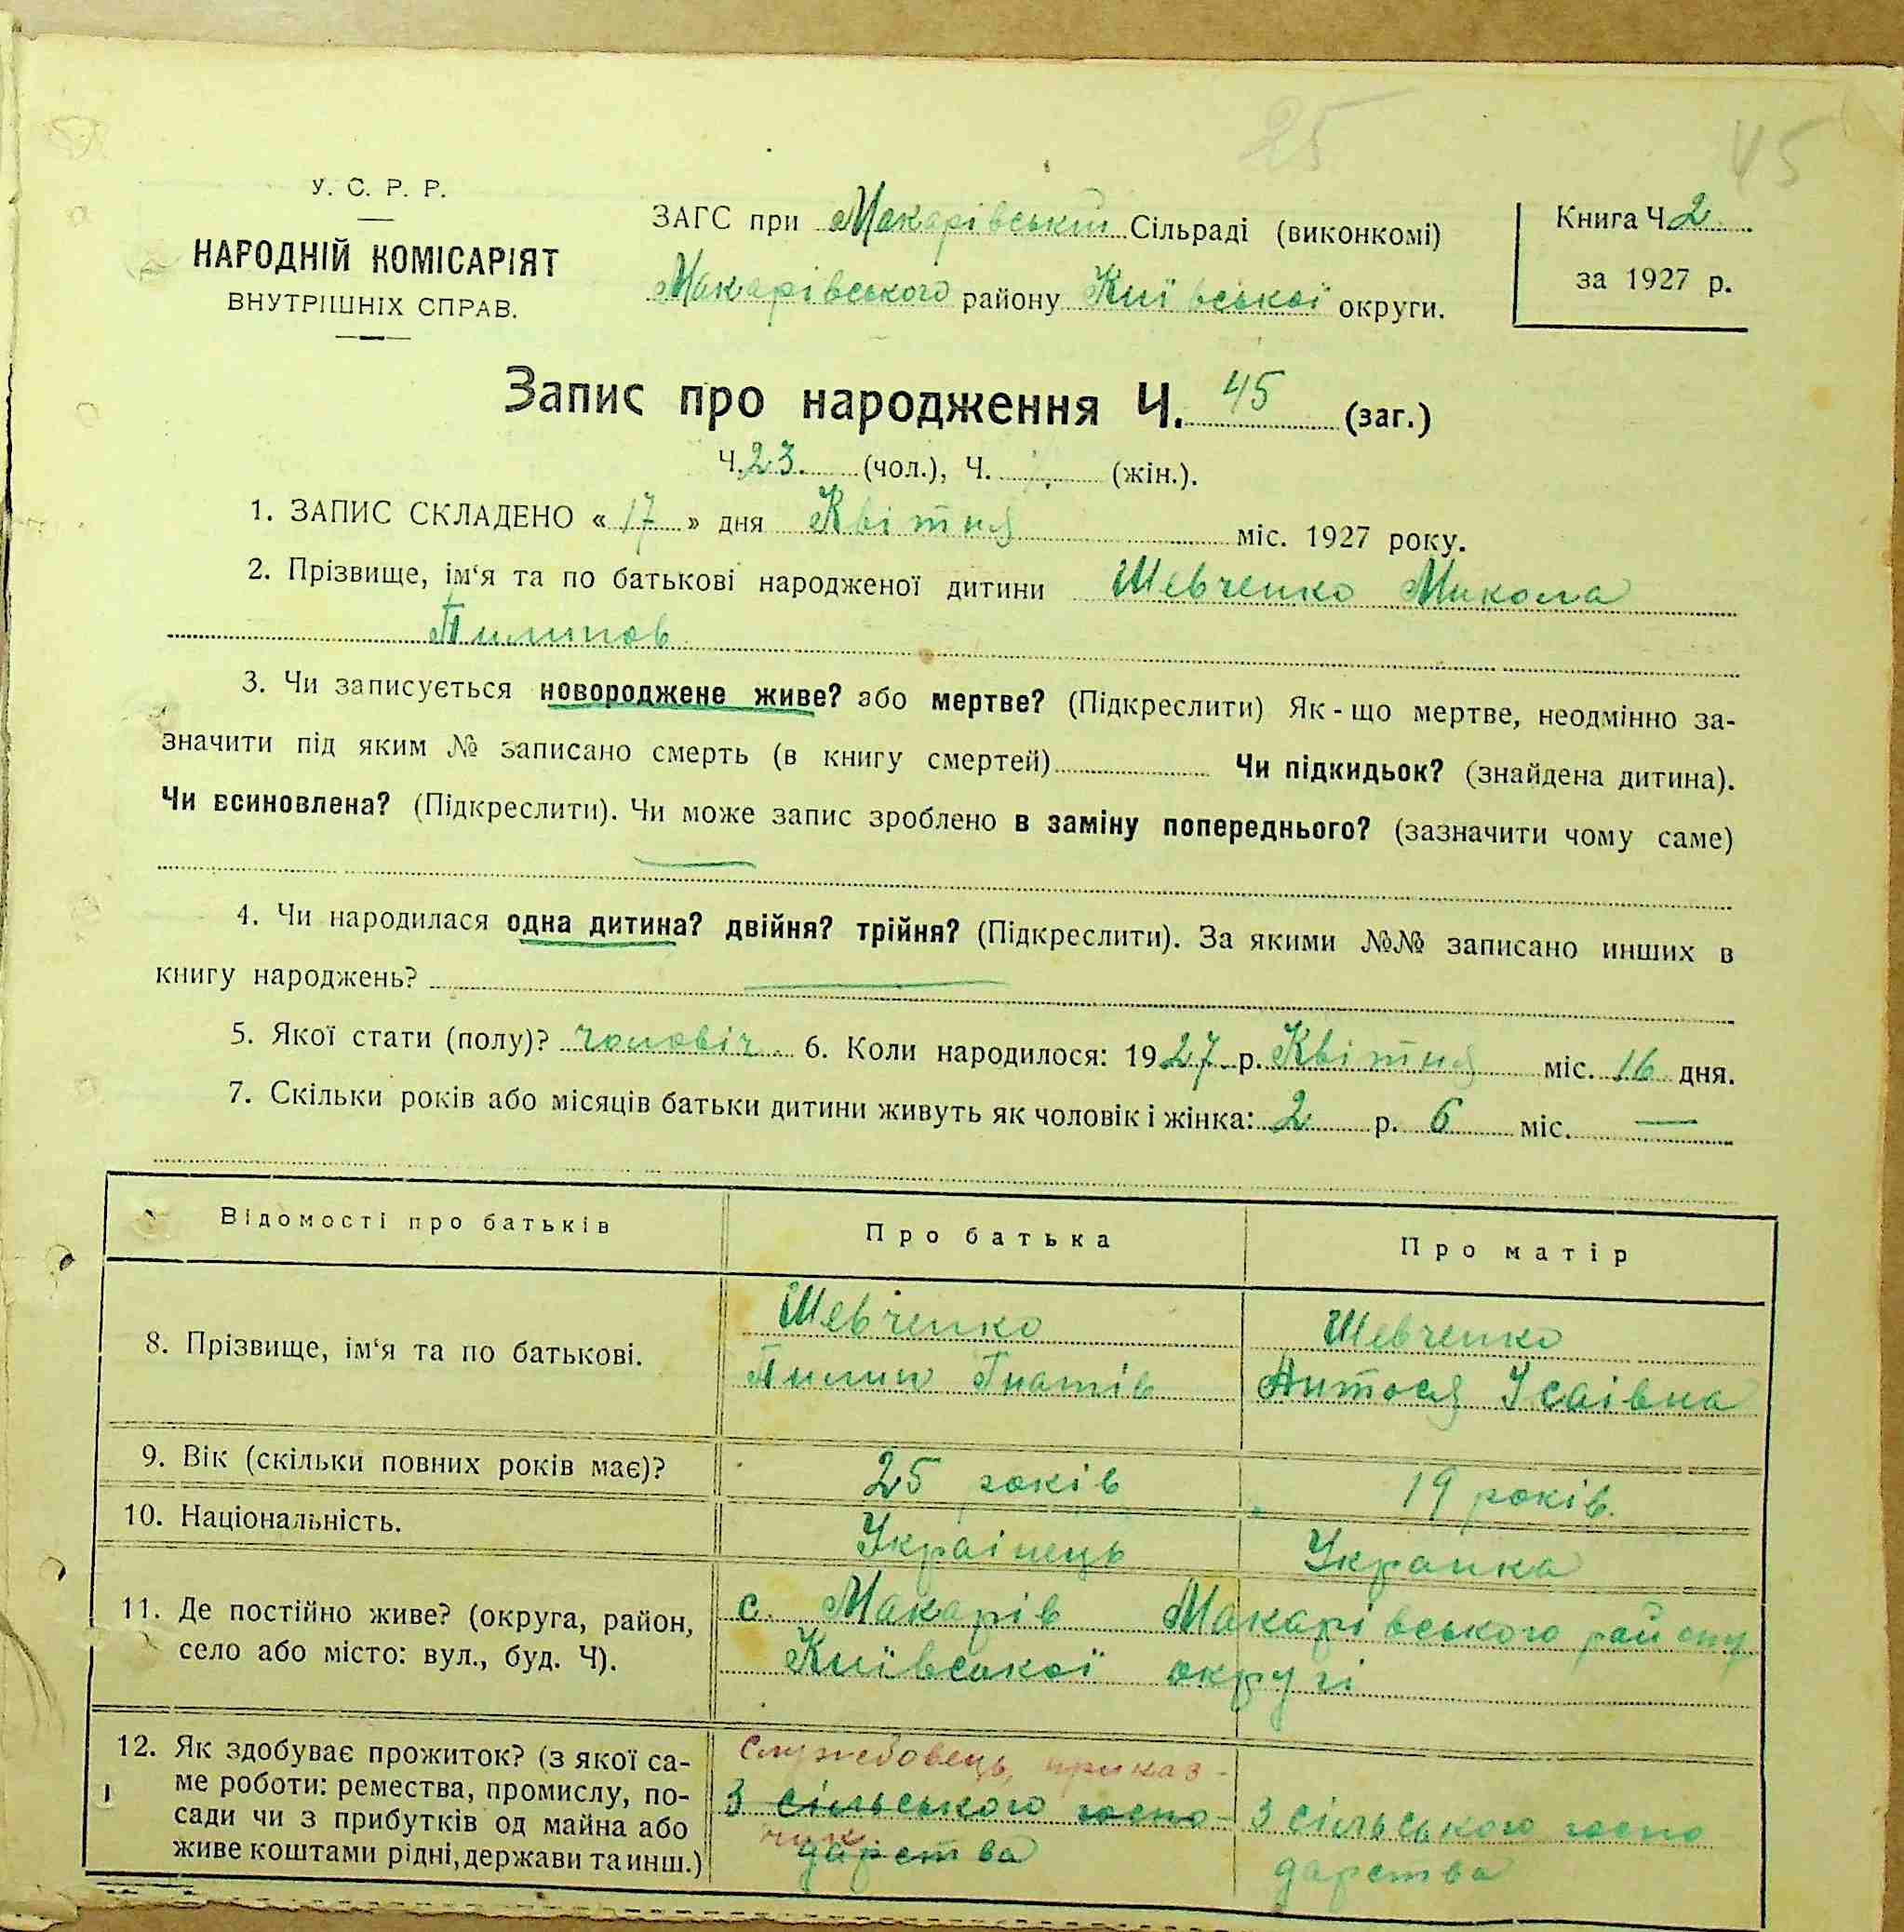 25
45
У. С. Р. Р.
НАРОДНІЙ КОМІСАРІЯТ
ВНУТРІШНІХ СПРАВ.
ЗАГС при Макарівській Сільраді (виконкомі)
Макарівського району Київської округи.
Книга Ч. 2
за 1927 р.
Запис про народження Ч. 45 (заг.)
Ч. 23. (чол.), Ч. (жін.).
1. ЗАПИС СКЛАДЕНО « 17 » дня Квітня міс. 1927 року.
2. Прізвище, ім‘я та по батькові народженої дитини Шевченко Микола
Пилипов
3. Чи записується новороджене живе? або мертве? (Підкреслити) Як-що мертве, неодмінно за-
значити під яким № записано смерть (в книгу смертей) Чи підкидьок? (знайдена дитина).
Чи всиновлена? (Підкреслити). Чи може запис зроблено в заміну попереднього? (зазначити чому саме)
4. Чи народилася одна дитина? двійня? трійня? (Підкреслити). За якими №№ записано инших в
книгу народжень?
5. Якої стати (полу)? чоловіч. 6. Коли народилося: 1927 р. Квітня міс. 16 дня.
7. Скільки років або місяців батьки дитини живуть як чоловік і жінка: 2 р. 6 міс. —
Відомості про батьків Про батька Про матір
8. Прізвище, ім‘я та по батькові.
Шевченко
Пилип Гнатів
Шевченко
Антося Ісаівна
9. Вік (скільки повних років має)? 25 років 19 років.
10. Національність. Украінець Украінка
11. Де постійно живе? (округа, район,
село або місто: вул., буд. Ч).
с. Макарів Макарівського району
Київської округі
12. Як здобуває прожиток? (з якої са-
ме роботи: ремества, промислу, по-
сади чи з прибутків од майна або
живе коштами рідні, держави та инш.)
Службовець, приказ-
чик
З сільського госпо-
дарства
З сільського госпо
дарства